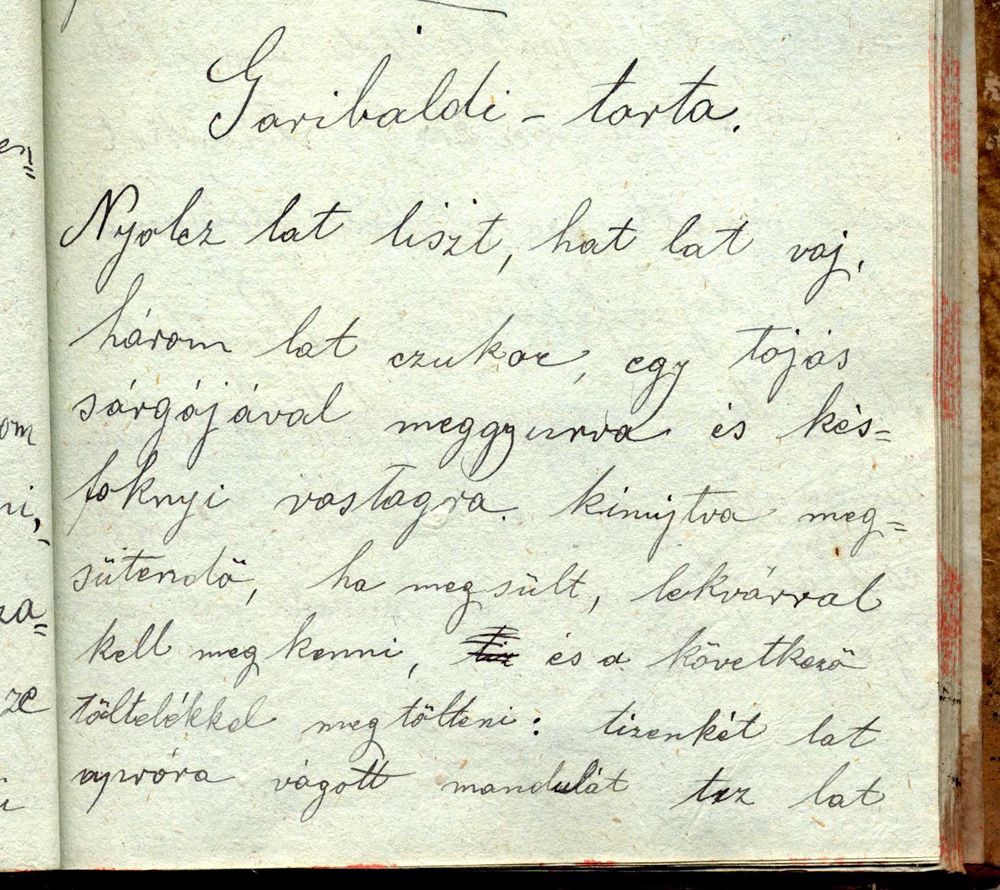 Garibaldi - torta.
Nyolcz lat liszt, hat lat vaj,
három lat czukor, egy tojás
sárgájával meggyurva és kés=
foknyi vastagra kinyujtva meg=
sütendő, ha megsült, lekvárral
kell megkenni, és a következő
töltelékkel megtölteni: tizenkét lat
apróra vágott mandulát tiz lat